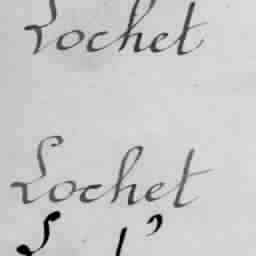 Lochet
Lochet